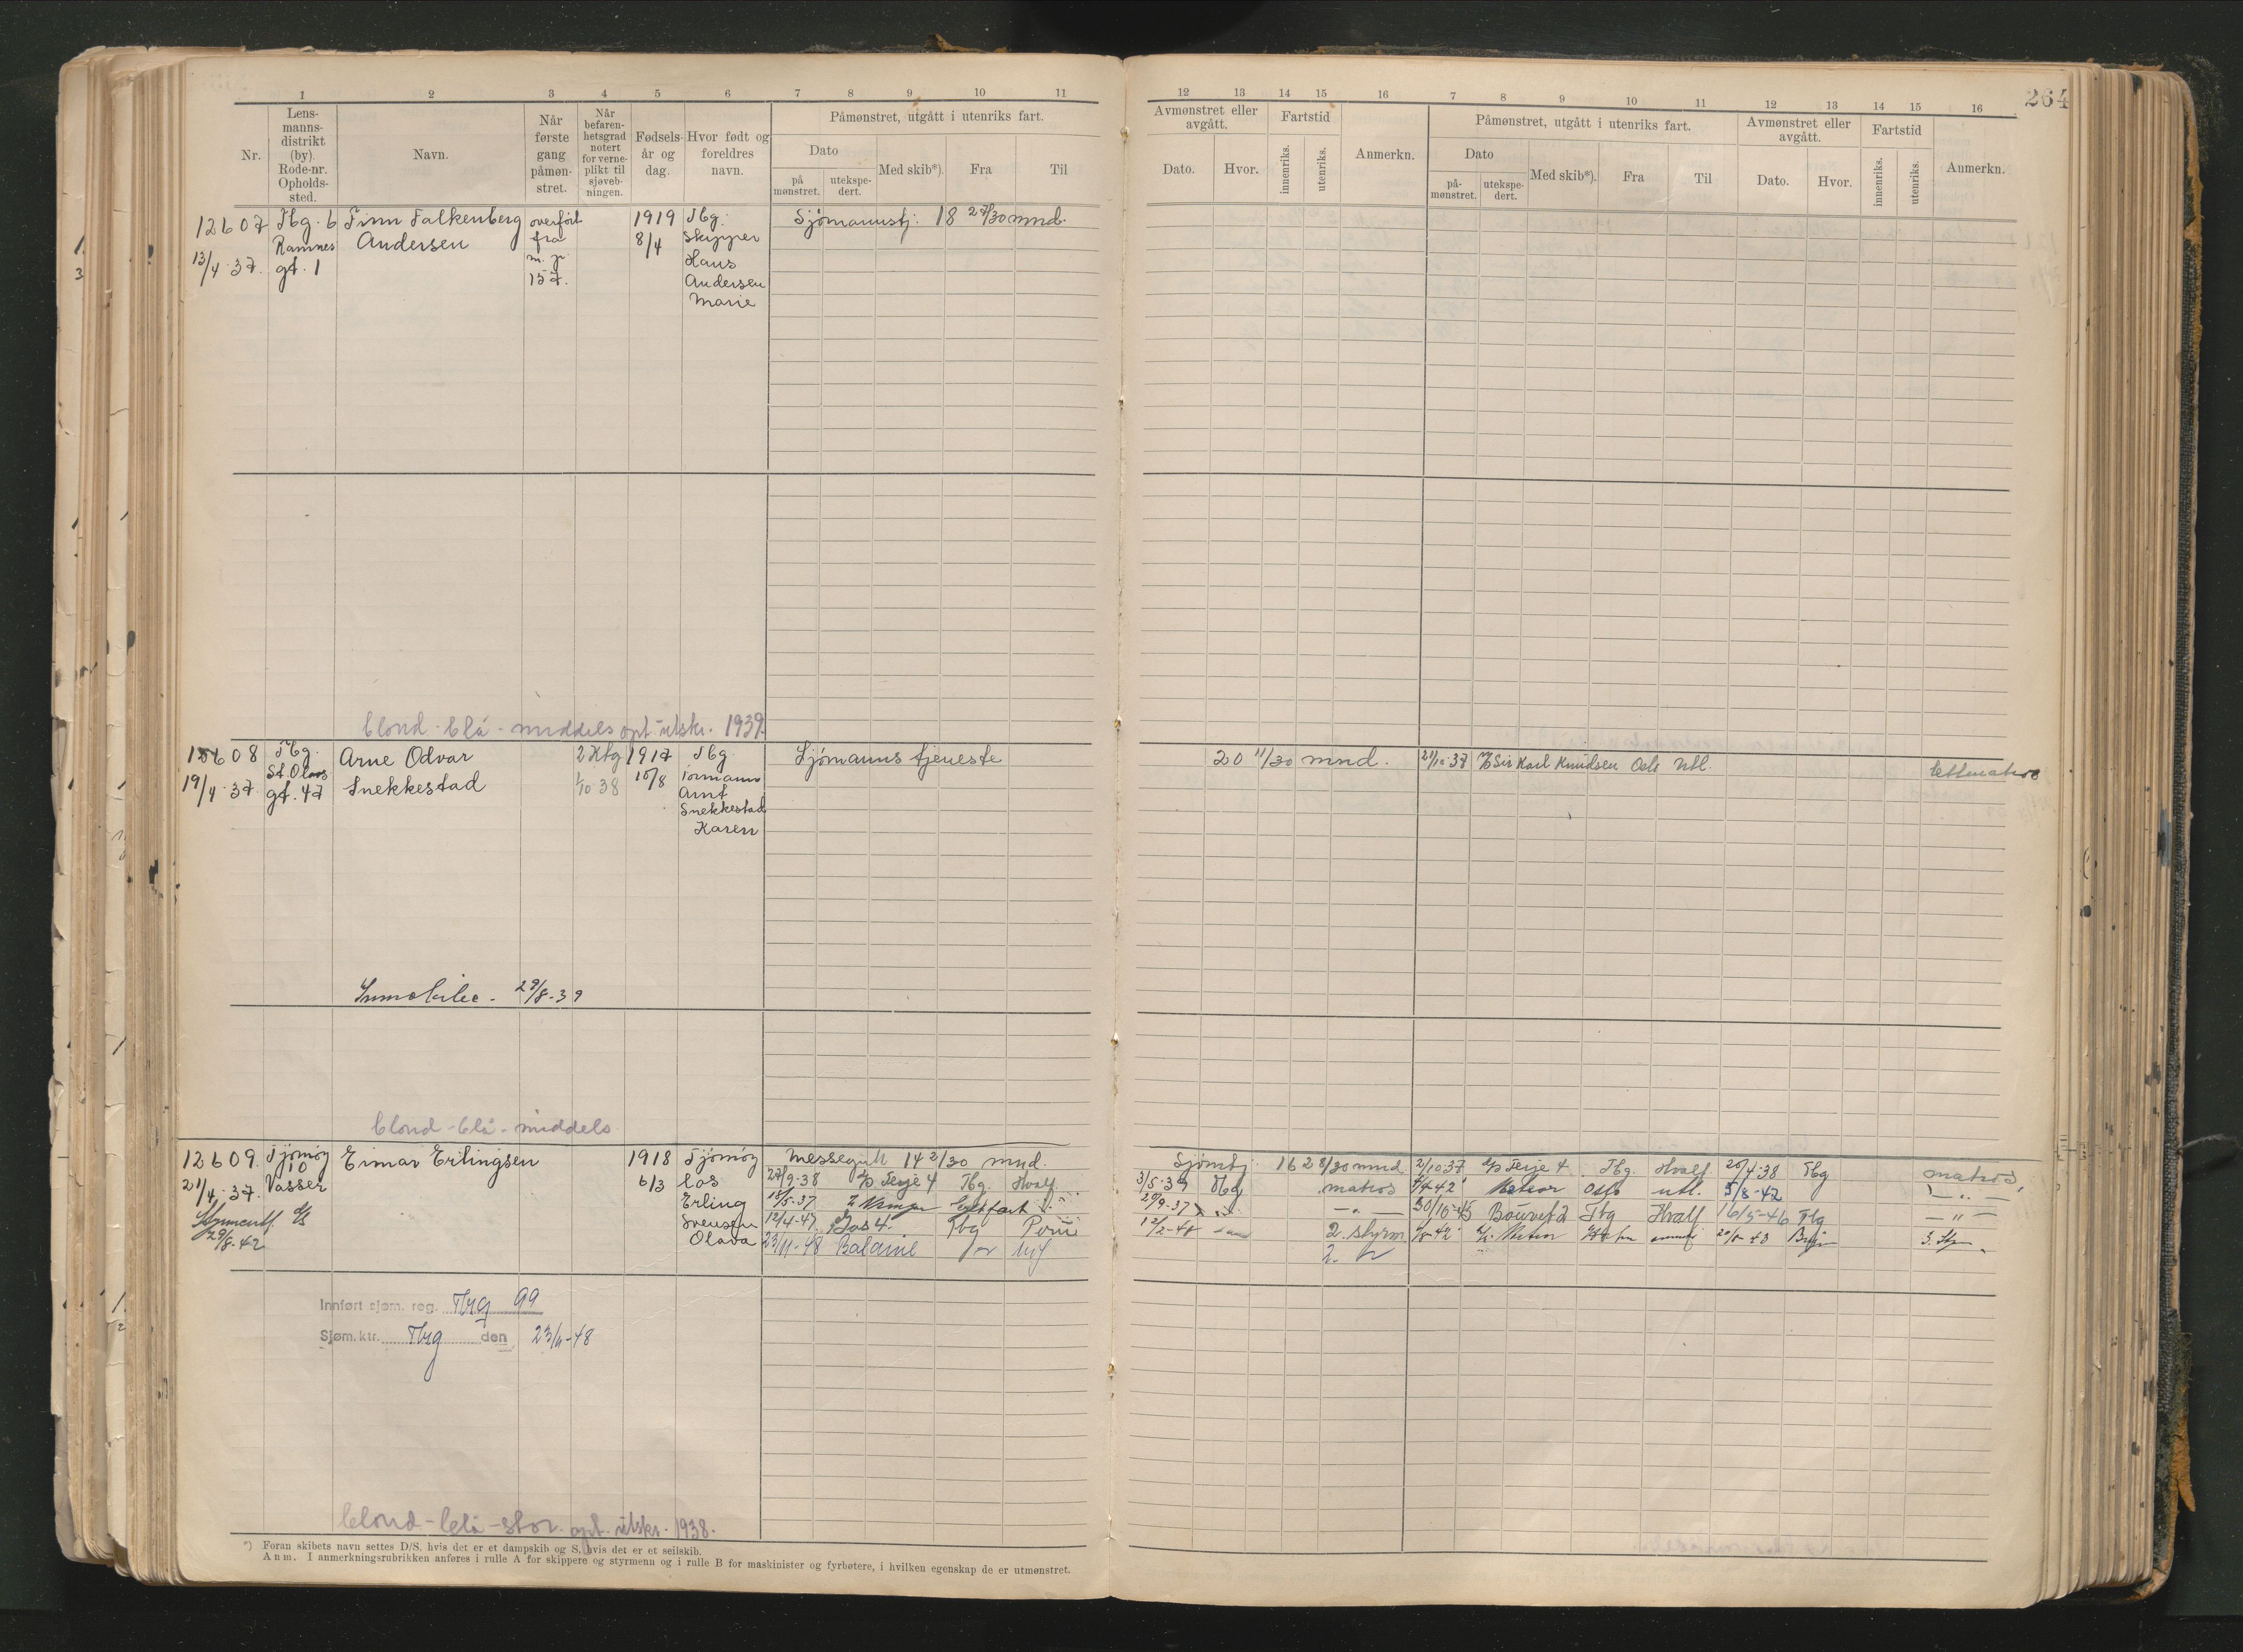 264
1 2 3 4 5 6 7 8 9 10 11
12 13 14 15 16 7 8 9 10 11 12 13 14 15 16
Nr.
Lens-
manns-
distrikt
(by).
Rode-nr.
Opholds-
sted.
Navn.
Når
første
gang
påmøn-
stret.
Når
befaren-
hetsgrad
notert
for verne-
plikt til
sjøveb-
ningen.
Fødsels-
år og
dag.
Hvor født og
foreldres
navn.
Påmønstret, utgått i utenriks fart.
Dato
på
mønstret.
utekspe-
dert.
Med skib*).
Fra
Til
Avmønstret eller
avgått.
Dato.
Hvor.
Fartstid
innenriks.
utenriks.
Anmerkn.
Påmønstret, utgått i utenriks fart.
Dato
på-
mønstret.
utekspe-
dert.
Med skib*).
Fra
Til
Avmønstret eller
avgått.
Dato.
Hvor.
Fartstid
innenriks.
utenriks.
Anmerkn.
12607
13/4 37.
Tbg. 6
Ramnes
gt. 1
Finn Falkenberg
Andersen
overført
fra
m. p.
157.
1919
8/4
Tbg.
Skipper
Hans
Andersen
Marie
Sjømannstj: 18 27/30 mnd.
blond - blå - middels opt. utskr. 1939.
12608
19/4 37.
Tbg.
St. Olavs
gt. 47
Arne Odvar
Snekkestad
1/10 38
1917
10/8
Tbg
Formann
Arnt
Snekkestad
Karen
Sjømanns tjeneste
20 11/30 mnd.
21/10-37 Sir Karl Knudsen Oslo Utl.
lettmatros
29/8-39
blond - blå - middels
12609.
21/4. 37.
29/8-42
Tjømøy
10
Vasser
Einar Erlingsen
1918
6/3
Tjømøy
los
Erling
Svensen
Olava
Messegutt 14 2/30 mnd.
Sjømtj. 16 28/30 mnd
27/9-38 Terje 4 Tbg. Hvalf.
3/5-39 Tbg matros
18/5-37
12/4-47 Tbg
2. styrm
23/11-48 Balaine
2/10 37 Terje 4 Tbg. Hvalf. 20/4-38 Tbg matros
Meteor Oslo utl. 5/8-42
30/10-45 Bouvet 2 Tbg Hvalf 16/5-46 Tbg
Meteor
Innført sjøm. reg. Tbg 99
Sjøm.ktr. Tbg den 23/11-48
blond - blå - stor. opt. utskr. 1938.
*) Foran skibets navn settes D/S, hvis det er et dampskib og S, hvis det er et seilskib.
Anm. I anmerkningsrubrikken anføres i rulle A for skippere og styrmenn og i rulle B for maskinister og fyrbøtere, i hvilken egenskap de er utmønstret.